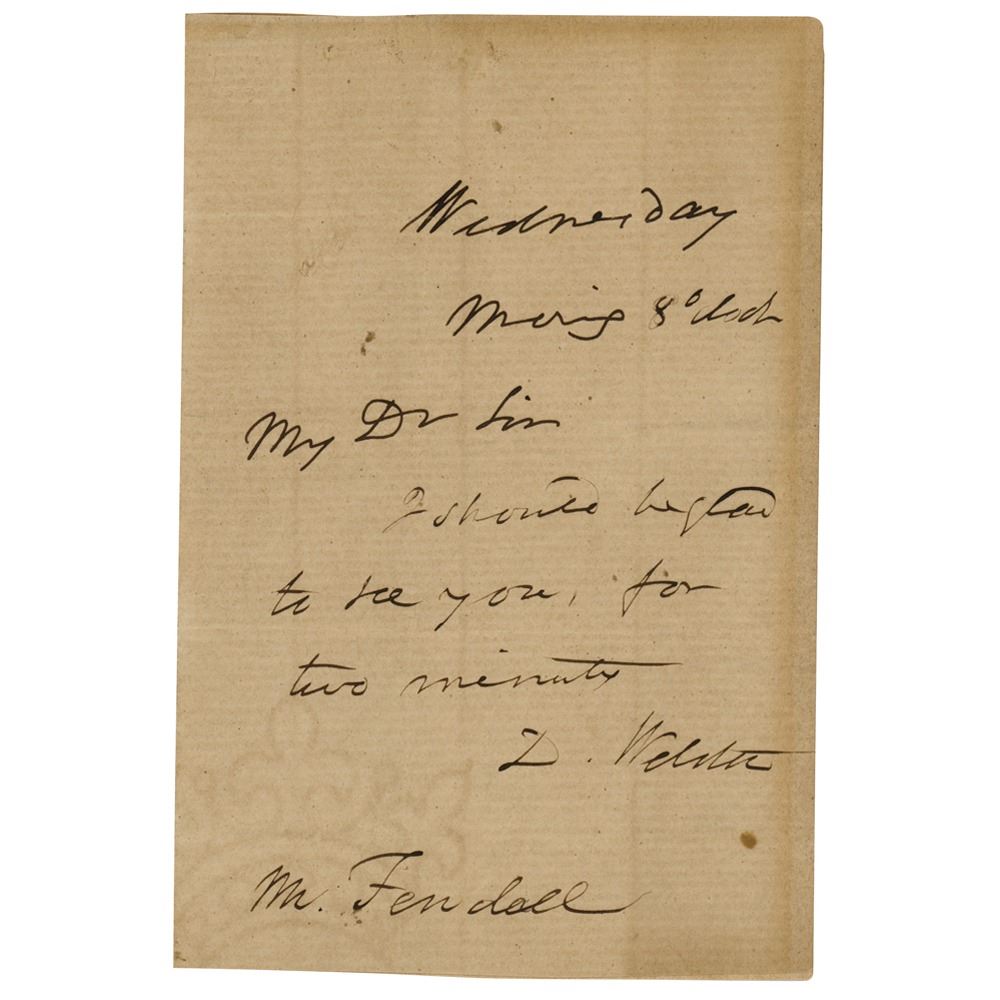 Wednesday
Morning 8 o'clock
My Dr Sir
I should be glad
to see you, for
two minutes
D. Webster
Mr. Fendall